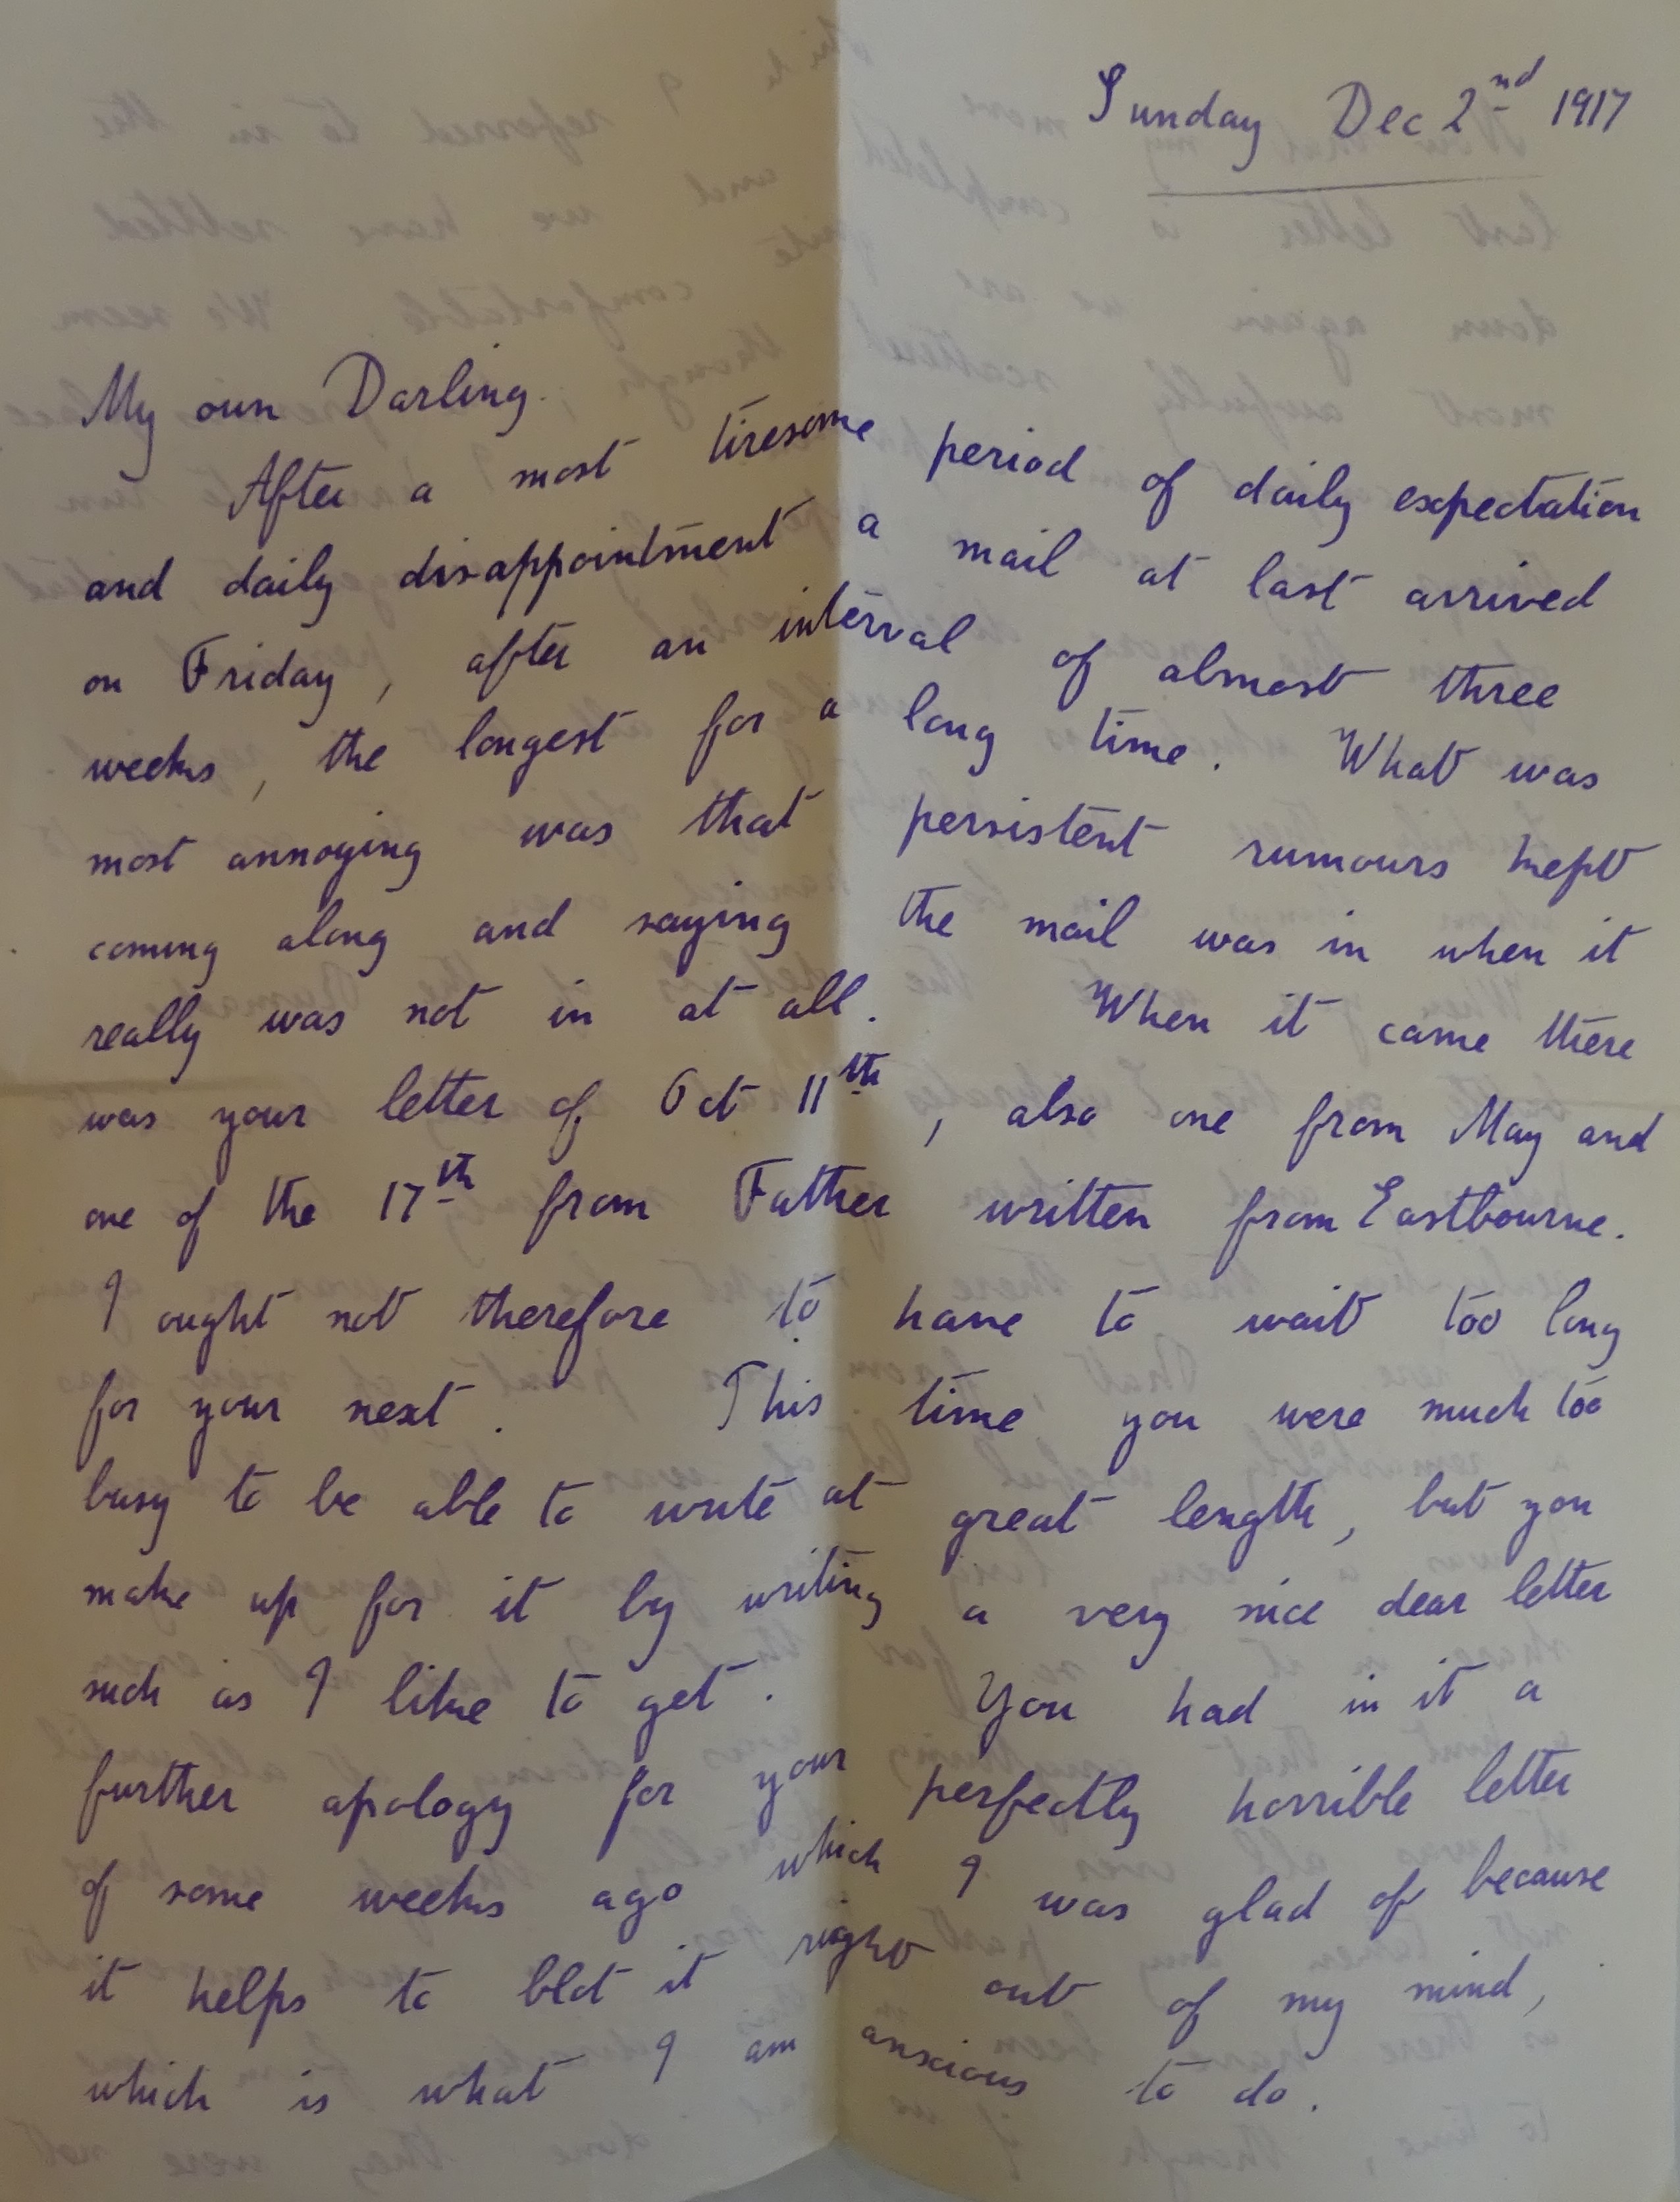 Sunday Dec 2nd 1917
My own Darling.
After a most tiresome period of daily expectation
and daily disappointment a mail at last arrived
on Friday, after an interval of almost three
weeks, the longest for a long time. What was
most annoying was that persistent rumours kept
coming along and saying the mail was in when it
really was not in at all. When it came there
was your letter of Oct 11th, also one from May and
one of the 17th from Father written from Eastbourne.
I ought not therefore to have to wait too long
for your next. This time you were much too
busy to be able to write at great length, but you
make up for it by writing a very nice dear letter
such as I like to get. You had in it a
further apology for your perfectly horrible letter
of some weeks ago which I was glad of because
it helps to blot it right out of my mind,
which is what I am anxious to do.